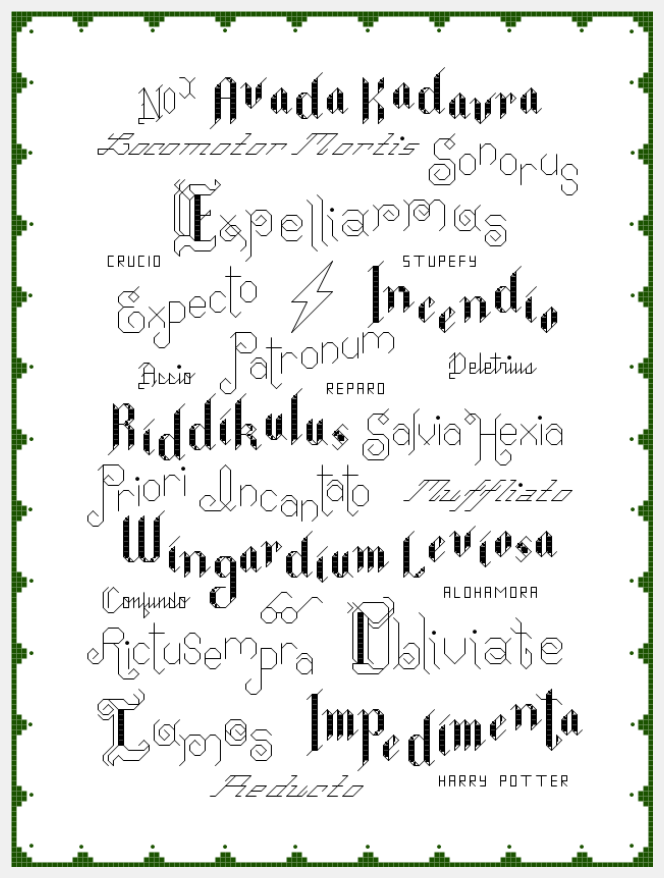 Nox Avada Kadavra
Locomotor Mortis Sonorus
Expelliarmus
CRUCIO STUPEFY
Expecto Incendio
Patronum
Accio Deletrius
REPARO
Riddikulus Salvia Hexia
Priori Incantato Muffliato
Wingardium Leviosa
Confundo ALOHAMORA
Rictusempra Obliviate
Lumos Impedimenta
Reducto HARRY POTTER